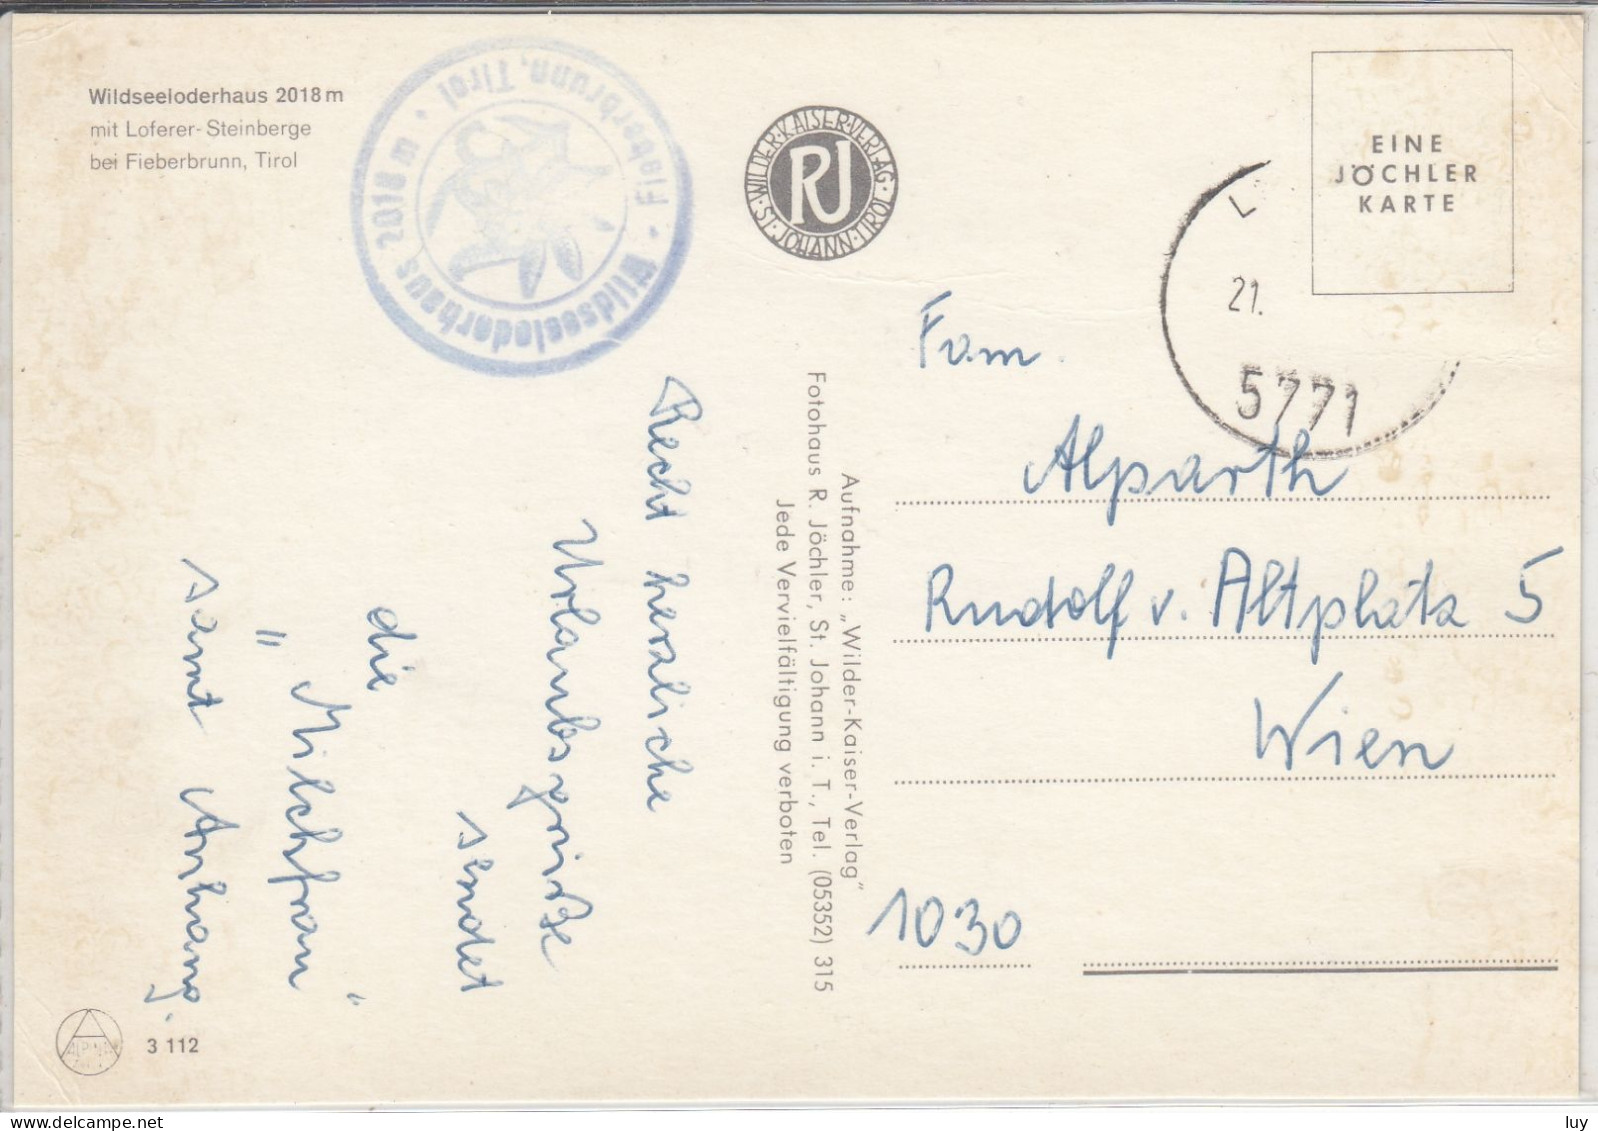 Wildseeloderhaus 2018 m
mit Loferer-Steinberge
bei Fieberbrunn, Tirol
Wildseeloderhaus 2018 m • Fieberbrunn, Tirol •
WILDER·KAISER·VERLAG·ST·JOHANN·TIROL·
RJ
EINE
JÖCHLER
KARTE
L
21.
5771
Recht herzliche
Urlaubsgrüße
sendet
die
"Milchfrau"
samt Anhang.
Aufnahme: „Wilder-Kaiser-Verlag"
Fotohaus R. Jöchler, St. Johann i. T., Tel. (05352) 315
Jede Vervielfältigung verboten
Fam.
Alparth
Rudolf v. Altplatz 5
Wien
1030
ALPINA
3 112
luy